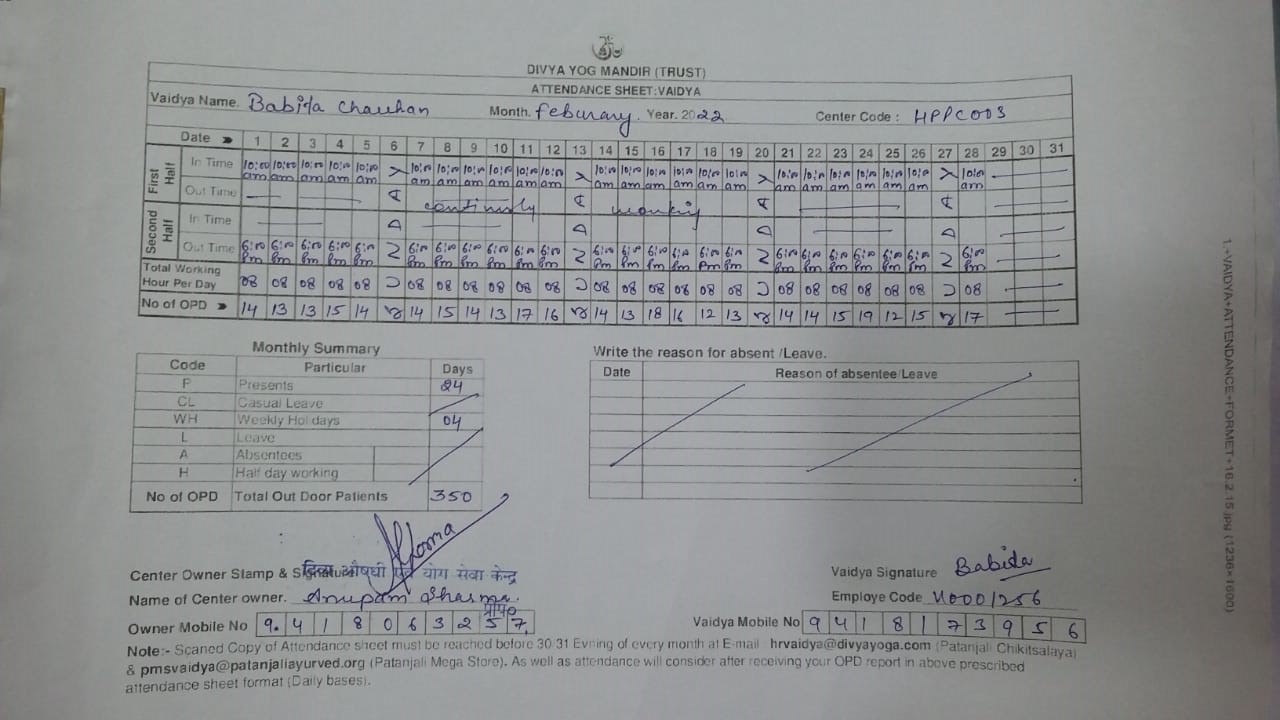 DIVYA YOG MANDIR (TRUST)
ATTENDANCE SHEET:VAIDYA
Vaidya Name. Babita Chauhan Month. Feburary. Year. 2022 Center Code : HPPC003
Date 1 2 3 4 5 6 7 8 9 10 11 12 13 14 15 16 17 18 19 20 21 22 23 24 25 26 27 28 29 30 31
First Half
In Time 10:00 am 10:00 am 10:00 am 10:00 am 10:00 am 10:00 am 10:00 am 10:00 am 10:00 am 10:00 am 10:00 am 10:00 am 10:00 am 10:00 am 10:00 am 10:00 am 10:00 am 10:00 am 10:00 am 10:00 am 10:00 am 10:00 am 10:00 am 10:00 am
Out Time
Second Half
In Time
Out Time 6:00 Pm 6:00 Pm 6:00 Pm 6:00 Pm 6:00 Pm 6:00 Pm 6:00 Pm 6:00 Pm 6:00 Pm 6:00 Pm 6:00 Pm 6:00 Pm 6:00 Pm 6:00 Pm 6:00 Pm 6:00 Pm 6:00 Pm 6:00 Pm 6:00 Pm 6:00 Pm 6:00 Pm 6:00 Pm 6:00 Pm 6:00 Pm
Total Working
Hour Per Day 08 08 08 08 08 08 08 08 08 08 08 08 08 08 08 08 08 08 08 08 08 08 08 08
No of OPD 14 13 13 15 14 14 15 14 13 17 16 14 13 18 16 12 13 14 14 15 19 12 15 17
Monthly Summary
Code Particular Days
P Presents 24
CL Casual Leave
WH Weekly Holidays 04
L Leave
A Absentees
H Half day working
No of OPD Total Out Door Patients 350
Write the reason for absent /Leave.
Date Reason of absentee/Leave
Center Owner Stamp & Signature दिव्य औषधी एवं योग सेवा केन्द्र
Name of Center owner. Anupam Sharma.
प्रोप०
Owner Mobile No 9418063257
Vaidya Signature Babita
Employe Code U0001256
Vaidya Mobile No 9418173956
Note:- Scaned Copy of Attendance sheet must be reached before 30-31 Evning of every month at E-mail hrvaidya@divyayoga.com (Patanjali Chikitsalaya)
& pmsvaidya@patanjaliayurved.org (Patanjali Mega Store). As well as attendance will consider after receiving your OPD report in above prescribed
attendance sheet format (Daily bases).
1.+VAIDYA+ATTENDANCE+FORMET+16.2.15.jpg (1236×1600)